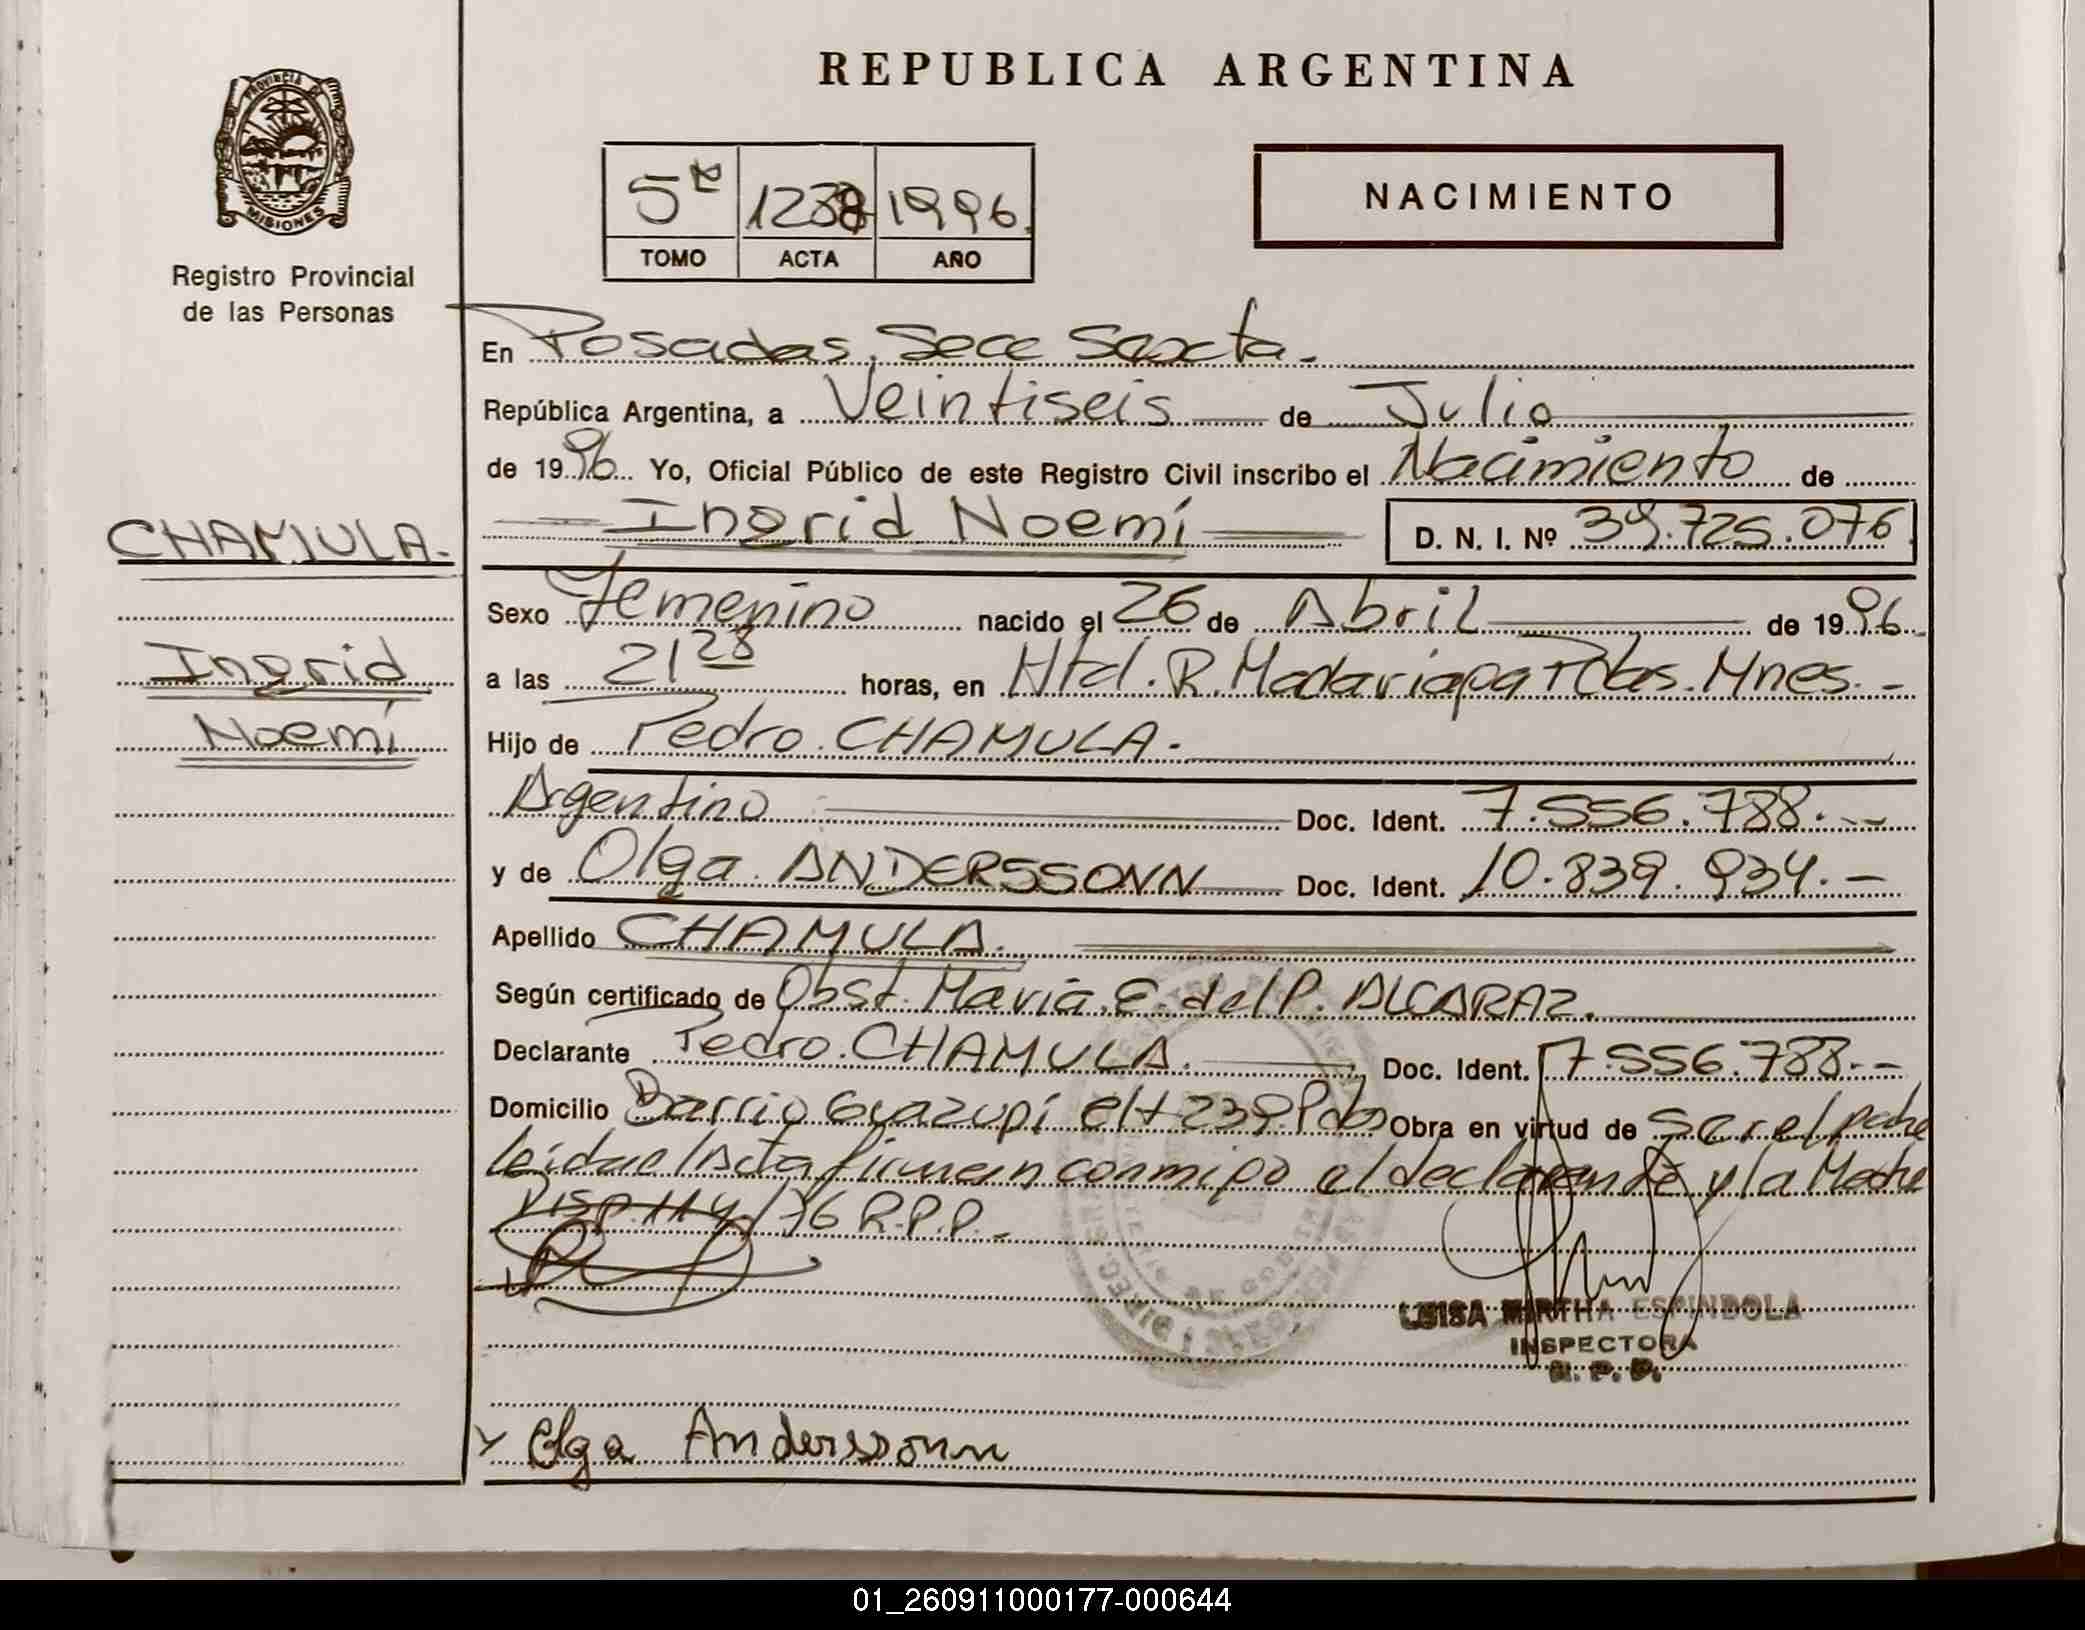 REPUBLICA ARGENTINA
PROVINCIA DE
MISIONES
Registro Provincial
de las Personas
5 to 1238 1996.
TOMO ACTA AÑO
NACIMIENTO
En Posadas. Secc Sexta.-
República Argentina, a Veintiseis de Julio
de 1996 Yo, Oficial Público de este Registro Civil inscribo el Nacimiento de
Ingrid Noemí D. N. I. Nº 39.725.076
CHAMULA.-
Ingrid
Noemí
Sexo Femenino nacido el 26 de Abril de 1996.
a las 21 28 horas, en Htal. R. Madariaga Pdas. Mnes.-
Hijo de Pedro. CHAMULA.-
Argentino Doc. Ident. 7.556.788.--
y de Olga. ANDERSSONN Doc. Ident. 10.839.934.-
Apellido CHAMULA.
Según certificado de Obst. María. E. del P. ALCARAZ.
Declarante Pedro. CHAMULA. Doc. Ident. 7.556.788.--
Domicilio Barrio Guazupí Obra en virtud de ser el padre
leída el Acta firman conmigo el declarante y la Madre
Disp. 114/76 R.P.P.-
LUISA MIRTHA ESPINDOLA
INSPECTORA
R. P. P.
Olga Anderssonn
01_260911000177-000644